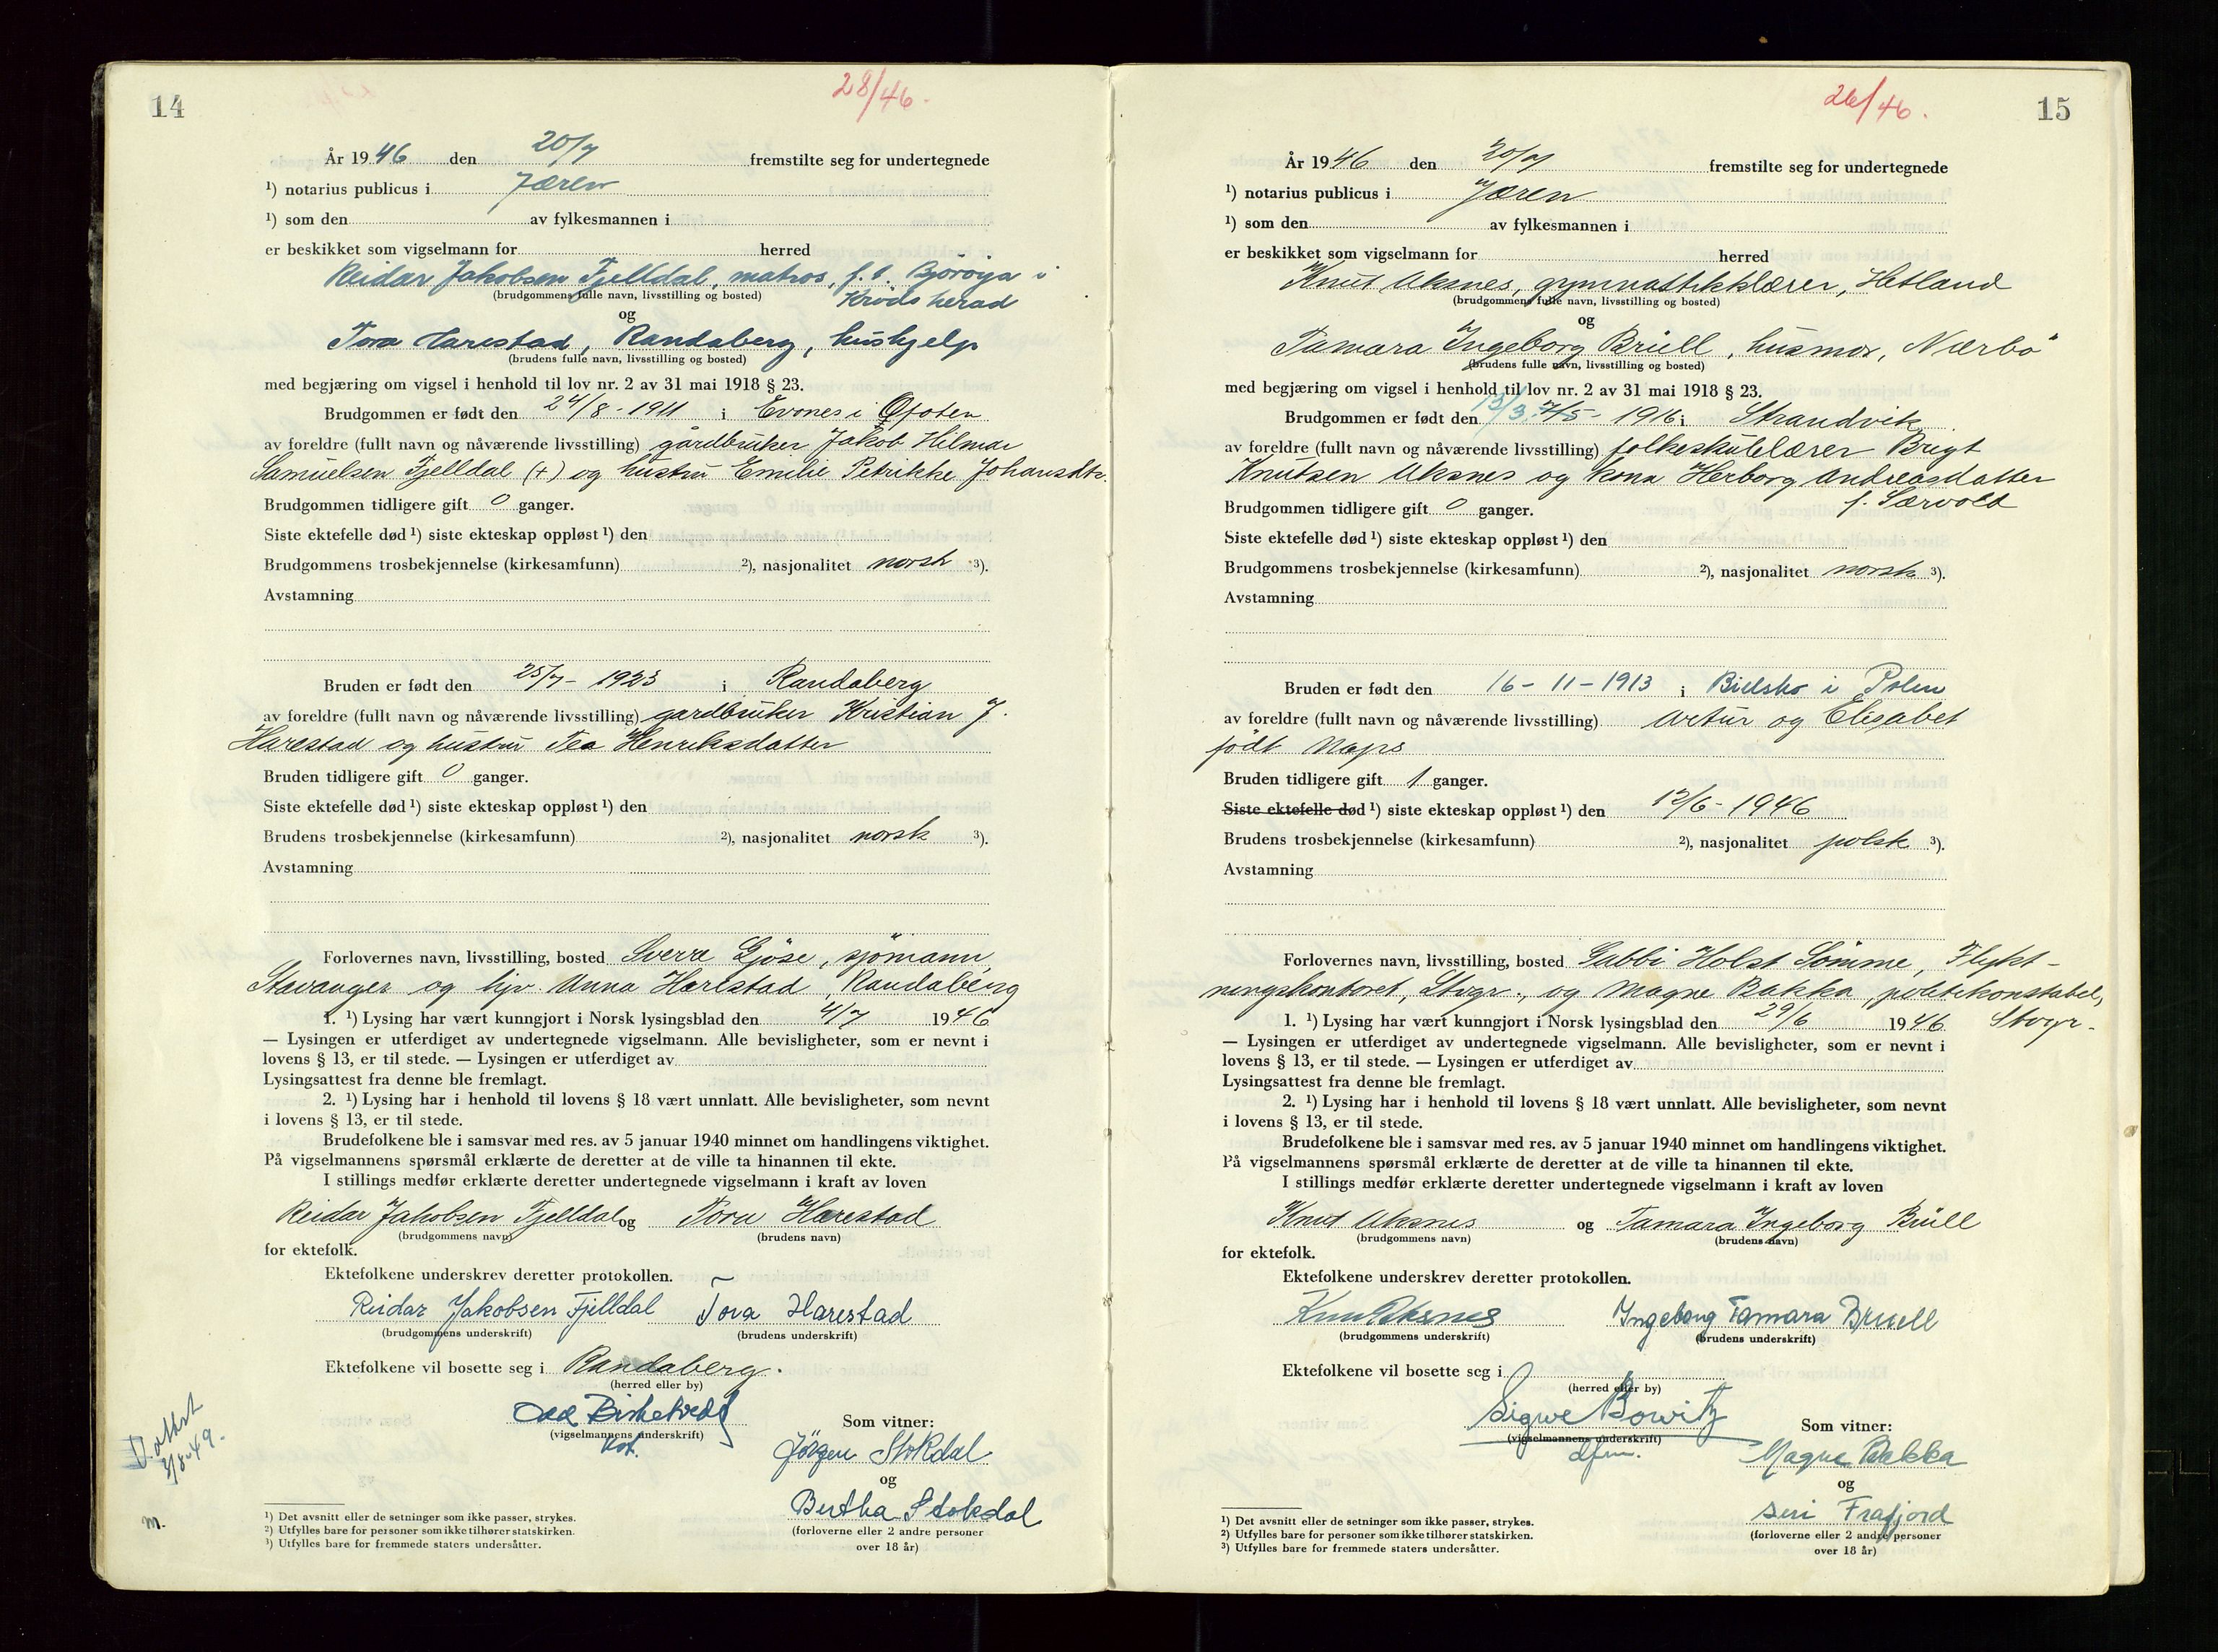 14
28/46.
År 1946 den 20/7 fremstilte seg for undertegnede
¹) notarius publicus i Jæren
¹) som den av fylkesmannen i
er beskikket som vigselmann for herred
Reidar Jakobsen Fjelldal, matros, f.t. Bjøröya i
Kröds herad
(brudgommens fulle navn, livsstilling og bosted)
og
Tora Harestad, Randaberg, hushjelp
(brudens fulle navn, livsstilling og bosted)
med begjæring om vigsel i henhold til lov nr. 2 av 31 mai 1918 § 23.
Brudgommen er født den 24/8-1911 i Evenes i Ofoten
av foreldre (fullt navn og nåværende livsstilling) gårdbruker Jakob Hilmar
Samuelsen Fjelldal (+) og hustru Emilie Petrikke Johansdtr.
Brudgommen tidligere gift 0 ganger.
Siste ektefelle død ¹) siste ekteskap oppløst ¹) den
Brudgommens trosbekjennelse (kirkesamfunn) ²), nasjonalitet norsk ³).
Avstamning
Bruden er født den 25/7- 1923 i Randaberg
av foreldre (fullt navn og nåværende livsstilling) gardbruker Kristian J.
Harestad og hustru Tea Henriksdatter
Bruden tidligere gift 0 ganger.
Siste ektefelle død ¹) siste ekteskap oppløst ¹) den
Brudens trosbekjennelse (kirkesamfunn) ²), nasjonalitet norsk ³).
Avstamning
Forlovernes navn, livsstilling, bosted Sverre Gjöse, sjömann,
Stavanger og hjv. Anna Harestad, Randaberg
1. ¹) Lysing har vært kunngjort i Norsk lysingsblad den 4/7 1946
— Lysingen er utferdiget av undertegnede vigselmann. Alle bevisligheter, som er nevnt i
lovens § 13, er til stede. — Lysingen er utferdiget av
Lysingsattest fra denne ble fremlagt.
2. ¹) Lysing har i henhold til lovens § 18 vært unnlatt. Alle bevisligheter, som nevnt
i lovens § 13, er til stede.
Brudefolkene ble i samsvar med res. av 5 januar 1940 minnet om handlingens viktighet.
På vigselmannens spørsmål erklærte de deretter at de ville ta hinannen til ekte.
I stillings medfør erklærte deretter undertegnede vigselmann i kraft av loven
Reidar Jakobsen Fjelldal og Tora Harestad
(brudgommens navn) (brudens navn)
for ektefolk.
Ektefolkene underskrev deretter protokollen.
Reidar Jakobsen Fjelldal Tora Harestad
(brudgommens underskrift) (brudens underskrift)
Ektefolkene vil bosette seg i Randaberg.
(herred eller by)
Odd Birketvedt
(vigselmannens underskrift)
Som vitner:
Jörgen Stokdal
og
Bertha Stokdal
(forloverne eller 2 andre personer
over 18 år)
D.attest
3/8-49.
m.
¹) Det avsnitt eller de setninger som ikke passer, strykes.
²) Utfylles bare for personer som ikke tilhører statskirken.
³) Utfylles bare for fremmede staters undersåtter.
15
26/46.
År 1946 den 20/7 fremstilte seg for undertegnede
¹) notarius publicus i Jæren
¹) som den av fylkesmannen i
er beskikket som vigselmann for herred
Knut Aksnes, gymnastikklærer, Hetland
(brudgommens fulle navn, livsstilling og bosted)
og
Tamara Ingeborg Brüell, husmor, Nærbö
(brudens fulle navn, livsstilling og bosted)
med begjæring om vigsel i henhold til lov nr. 2 av 31 mai 1918 § 23.
Brudgommen er født den 13/3. 7/5- 1916 i Strandvik
av foreldre (fullt navn og nåværende livsstilling) folkeskulelærer Brigt
Knutsen Aksnes og kona Herborg Andreasdatter
f. Særvold
Brudgommen tidligere gift 0 ganger.
Siste ektefelle død ¹) siste ekteskap oppløst ¹) den
Brudgommens trosbekjennelse (kirkesamfunn) ²), nasjonalitet norsk ³).
Avstamning
Bruden er født den 16-11-1913 i Bielsko i Polen
av foreldre (fullt navn og nåværende livsstilling) Artur og Elisabet
født Maps
Bruden tidligere gift 1 ganger.
Siste ektefelle død ¹) siste ekteskap oppløst ¹) den 12/6-1946
Brudens trosbekjennelse (kirkesamfunn) ²), nasjonalitet polsk ³).
Avstamning
Forlovernes navn, livsstilling, bosted Gubbi Holst Sömme, Flykt-
ningskontoret, Stvgr., og Magne Bakka, politikonstabel,
Stvgr.
1. ¹) Lysing har vært kunngjort i Norsk lysingsblad den 29/6 1946
— Lysingen er utferdiget av undertegnede vigselmann. Alle bevisligheter, som er nevnt i
lovens § 13, er til stede. — Lysingen er utferdiget av
Lysingsattest fra denne ble fremlagt.
2. ¹) Lysing har i henhold til lovens § 18 vært unnlatt. Alle bevisligheter, som nevnt
i lovens § 13, er til stede.
Brudefolkene ble i samsvar med res. av 5 januar 1940 minnet om handlingens viktighet.
På vigselmannens spørsmål erklærte de deretter at de ville ta hinannen til ekte.
I stillings medfør erklærte deretter undertegnede vigselmann i kraft av loven
Knut Aksnes og Tamara Ingeborg Brüell
(brudgommens navn) (brudens navn)
for ektefolk.
Ektefolkene underskrev deretter protokollen.
Knut Aksnes Ingeborg Tamara Bruell
(brudgommens underskrift) (brudens underskrift)
Ektefolkene vil bosette seg i
(herred eller by)
Sigwe Bowitz
(vigselmannens underskrift)
dfm.
Som vitner:
Magne Bakka
og
Siri Frafjord
(forloverne eller 2 andre personer
over 18 år)
¹) Det avsnitt eller de setninger som ikke passer, strykes.
²) Utfylles bare for personer som ikke tilhører statskirken.
³) Utfylles bare for fremmede staters undersåtter.